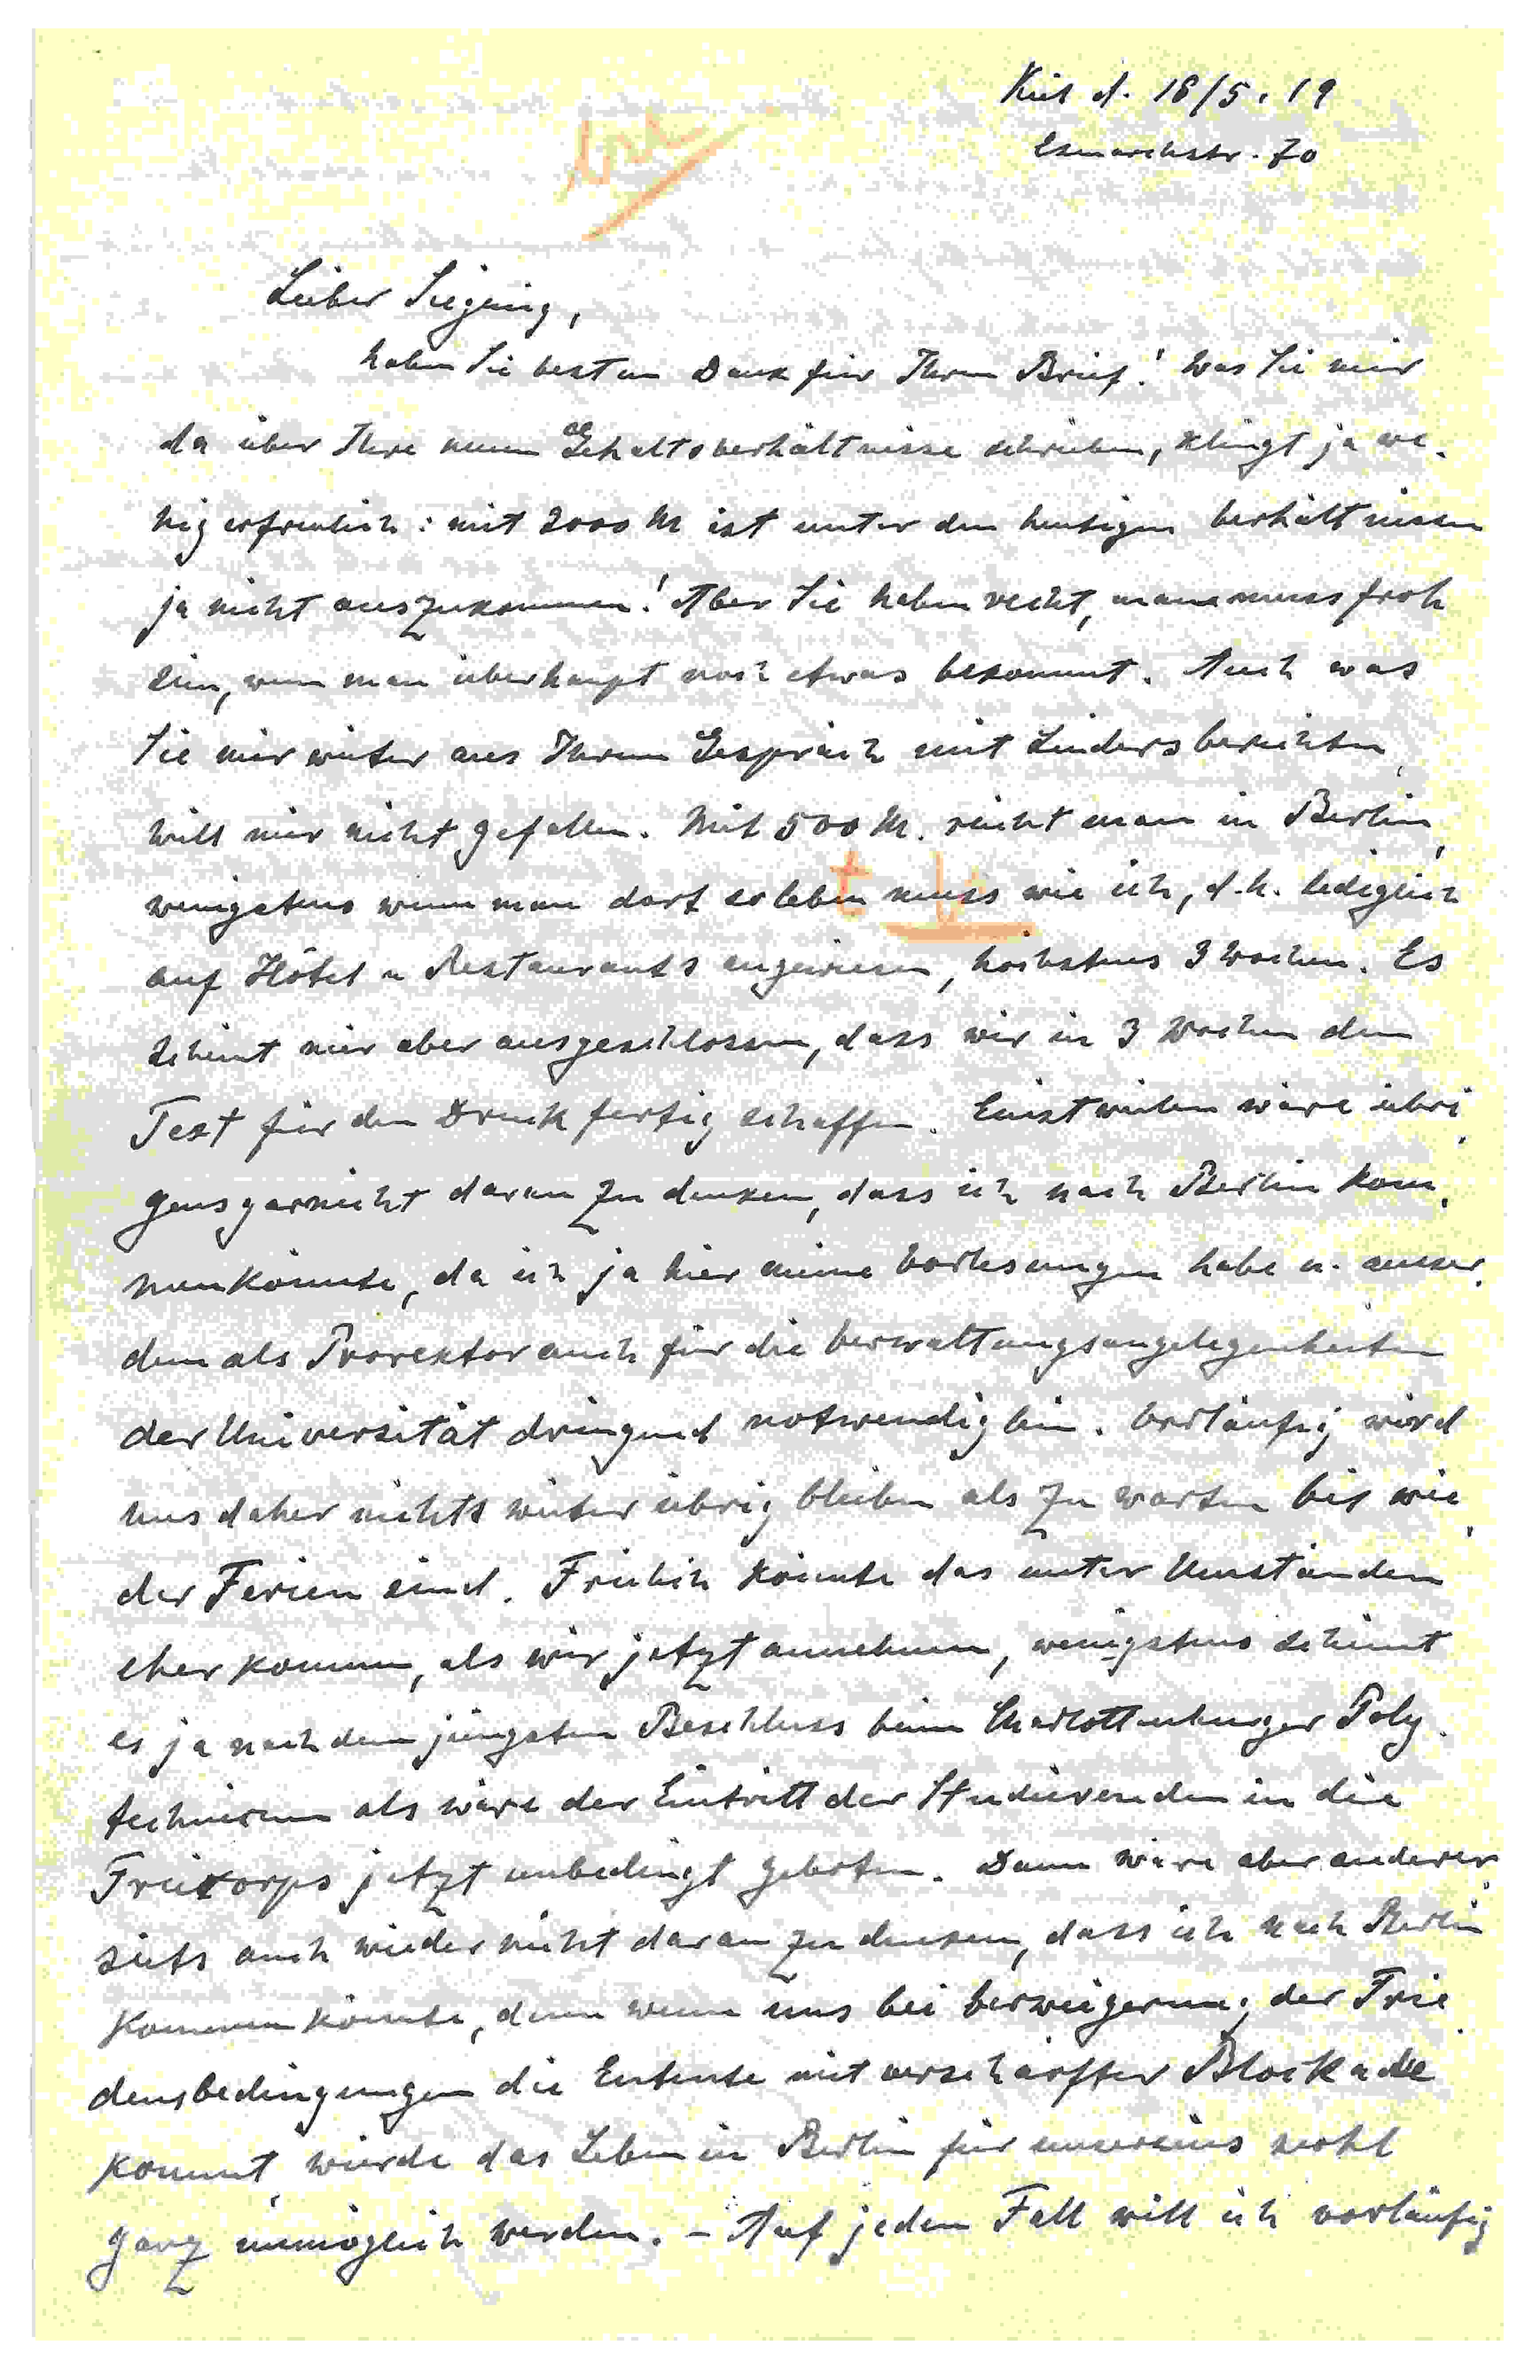 Kiel d. 18/5. 19
Esmarchstr. 70
Lieber Siegling,
haben Sie besten Dank für Ihren Brief! Was Sie mir
da über Ihre neuen Gehaltsverhältnisse schrieben, klingt ja we-
nig erfreulich: mit 2000 M ist unter den heutigen Verhältnissen
ja nicht auszukommen! Aber Sie haben recht, man muss froh
sein, wenn man überhaupt noch etwas bekommt. Auch was
Sie mir weiter aus Ihrem Gespräch mit Lüders berichten,
will mir nicht gefallen. Mit 500 M. reicht man in Berlin,
wenigstens wenn man dort so leben muss wie ich, d.h. lediglich
auf Hôtel u Restaurants angewiesen, höchstens 3 Wochen. Es
scheint mir aber ausgeschlossen, dass wir in 3 Wochen den
Text für den Druck fertig schaffen. Einstweilen wäre übri-
gens garnicht daran zu denken, dass ich nach Berlin kom-
men könnte, da ich ja hier meine Vorlesungen habe u. ausser-
dem als Prorektor auch für die Verwaltungsangelegenheiten
der Universität dringend notwendig bin. Vorläufig wird
uns daher nichts weiter übrig bleiben als zu warten bis wie-
der Ferien sind. Freilich könnte das unter Umständen
eher kommen, als wir jetzt annehmen, wenigstens scheint
es ja nach dem jüngsten Beschluss beim Charlottenburger Poly-
technicum als wäre der Eintritt der Studierenden in die
Freikorps jetzt unbedingt geboten. Dann wäre aber anderer-
seits auch wieder nicht daran zu denken, dass ich nach Berlin
kommen könnte, denn wenn uns bei Verweigerung der Frie-
densbedingungen die Entente mit verschärfter Blockade
kommt, würde das Leben in Berlin für unsereins wohl
ganz unmöglich werden. – Auf jeden Fall will ich vorläufig